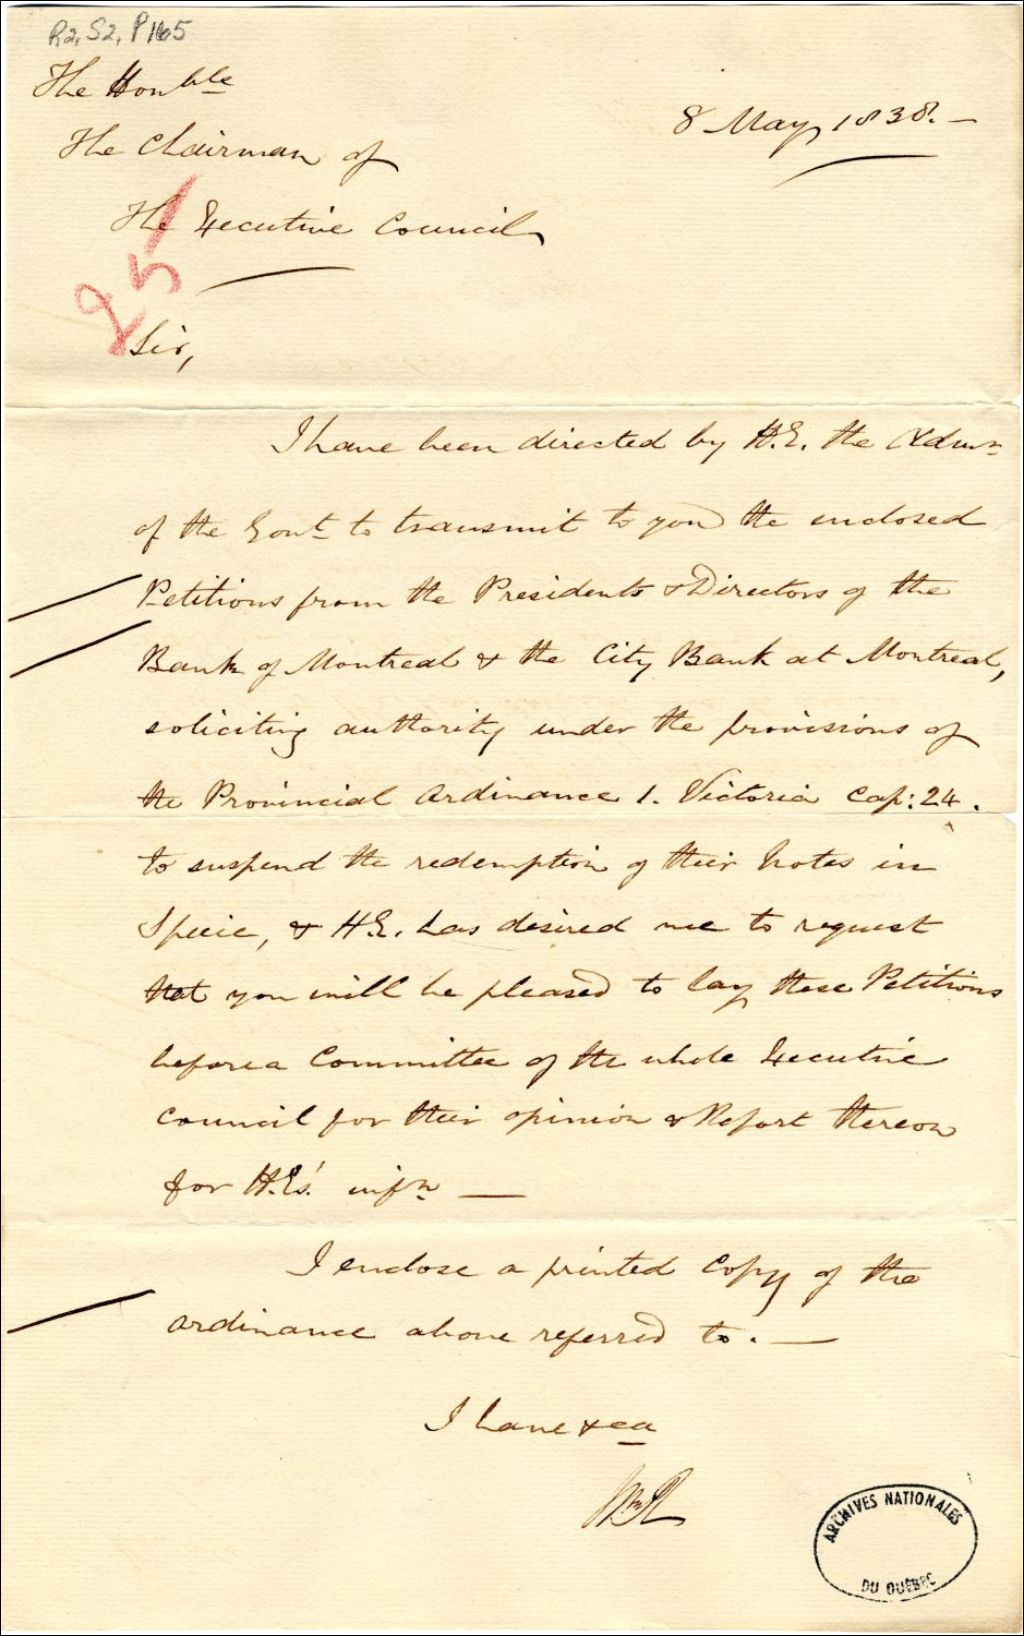 R2, S2, P165
The Honble
8 May 1838. —
The Chairman of
The Executive Council
251
Sir,
I have been directed by H.E. the Admn
of the Govt to transmit to you the enclosed
Petitions from the Presidents & Directors of the
Bank of Montreal & the City Bank at Montreal,
soliciting authority under the provisions of
the Provincial Ordinance 1. Victoria Cap: 24.
to suspend the redemption of their Notes in
Specie, & H.E. has desired me to request
that you will be pleased to lay these Petitions
before a Committee of the whole Executive
Council for their opinion & Report thereon
for H.Es' infn —
I enclose a printed Copy of the
Ordinance above referred to. —
I have &ca
ARCHIVES NATIONALES
DU QUÉBEC